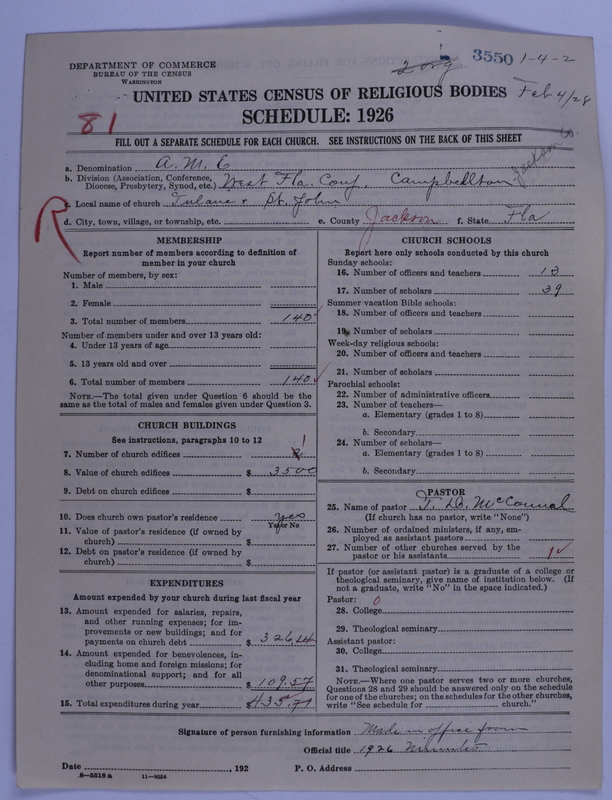 DEPARTMENT OF COMMERCE
BUREAU OF THE CENSUS
WASHINGTON
3550 1-4-2
UNITED STATES CENSUS OF RELIGIOUS BODIES Feb 4/28
SCHEDULE: 1926
81
FILL OUT A SEPARATE SCHEDULE FOR EACH CHURCH. SEE INSTRUCTIONS ON THE BACK OF THIS SHEET
a. Denomination A. M. E
b. Division (Association, Conference, Diocese, Presbytery, Synod, etc.) West Fla. Conf. Campbellton Jackson
R
c. Local name of church Tulane + St. John
d. City, town, village, or township, etc. e. County Jackson f. State Fla
MEMBERSHIP
Report number of members according to definition of
member in your church
Number of members, by sex:
1. Male
2. Female
3. Total number of members 140
Number of members under and over 13 years old:
4. Under 13 years of age
5. 13 years old and over
6. Total number of members 140
NOTE.—The total given under Question 6 should be the
same as the total of males and females given under Question 3.
CHURCH BUILDINGS
See instructions, paragraphs 10 to 12
7. Number of church edifices 1
8. Value of church edifices $ 3500
9. Debt on church edifices $
10. Does church own pastor's residence yes
Yes or No
11. Value of pastor's residence (if owned by
church) $
12. Debt on pastor's residence (if owned by
church) $
EXPENDITURES
Amount expended by your church during last fiscal year
13. Amount expended for salaries, repairs,
and other running expenses; for im-
provements or new buildings; and for
payments on church debt $ 326.14
14. Amount expended for benevolences, in-
cluding home and foreign missions; for
denominational support; and for all
other purposes $ 109.57
15. Total expenditures during year $ 435.71
CHURCH SCHOOLS
Report here only schools conducted by this church
Sunday schools:
16. Number of officers and teachers 13
17. Number of scholars 39
Summer vacation Bible schools:
18. Number of officers and teachers
19. Number of scholars
Week-day religious schools:
20. Number of officers and teachers
21. Number of scholars
Parochial schools:
22. Number of administrative officers
23. Number of teachers—
a. Elementary (grades 1 to 8)
b. Secondary
24. Number of scholars—
a. Elementary (grades 1 to 8)
b. Secondary
PASTOR
25. Name of pastor J. D. McConnal
(If church has no pastor, write "None")
26. Number of ordained ministers, if any, em-
ployed as assistant pastors
27. Number of other churches served by the
pastor or his assistants 1
If pastor (or assistant pastor) is a graduate of a college or
theological seminary, give name of institution below. (If
not a graduate, write "No" in the space indicated.)
Pastor: 0
28. College
29. Theological seminary
Assistant pastor:
30. College
31. Theological seminary
NOTE.—Where one pastor serves two or more churches,
Questions 28 and 29 should be answered only on the schedule
for one of the churches; on the schedules for the other churches,
write "See schedule for church."
Signature of person furnishing information Made in office from
Official title 1926 Minutes
Date , 192 P. O. Address
8-5518 a 11-9054